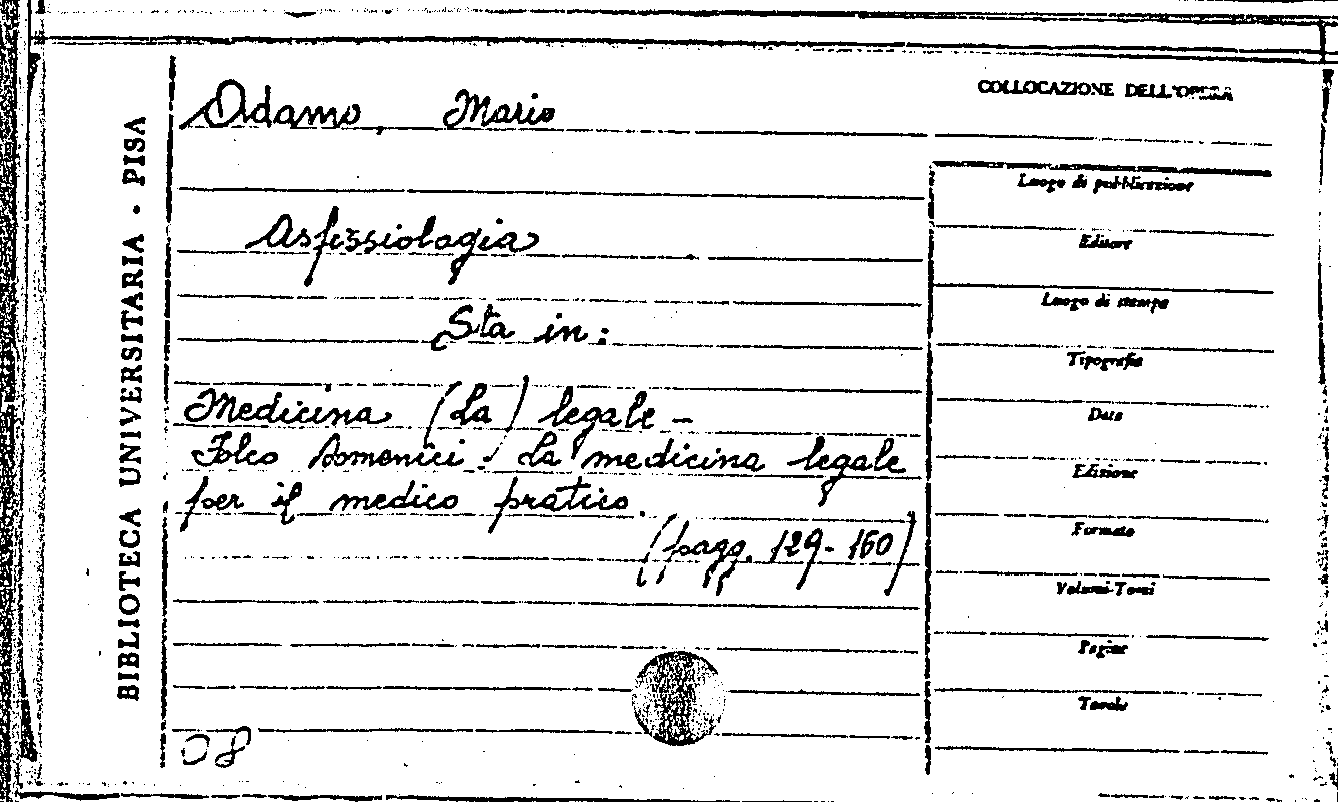 COLLOCAZIONE DELL'OPERA
Adamo, Mario
Asfissiologia
Sta in:
Medicina (La) legale -
Folco Domenici: La medicina legale
per il medico pratico.
(pagg. 129-160)
08
BIBLIOTECA UNIVERSITARIA · PISA
Luogo di pubblicazione
Editore
Luogo di stampa
Tipografia
Data
Edizione
Formato
Volumi-Tomi
Pagine
Tavole